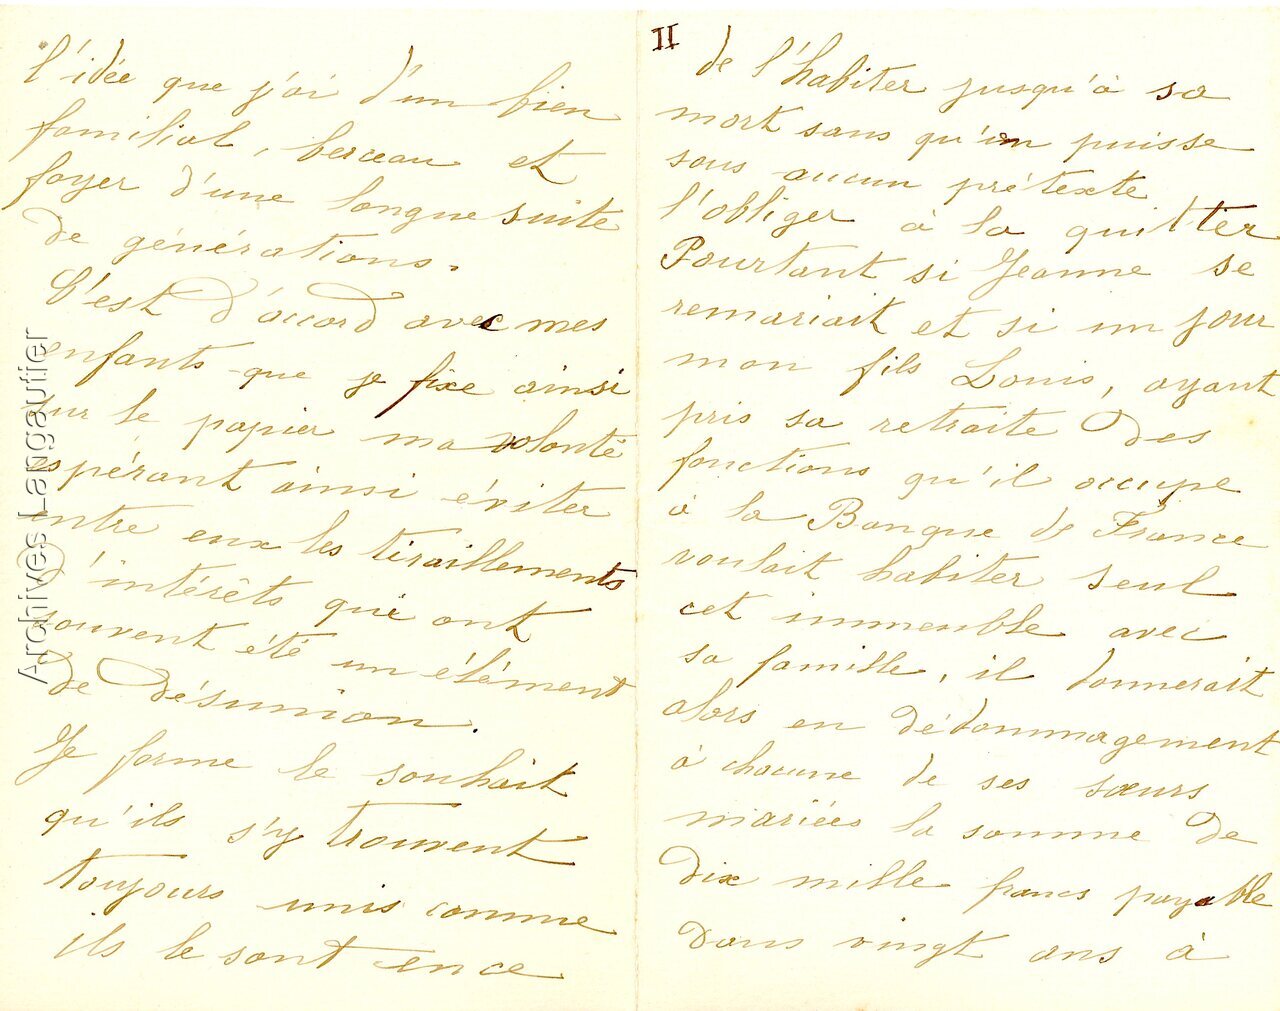 l'idée que j'ai d'un bien
familial, berceau et
foyer d'une longue suite
de générations.
C'est d'accord avec mes
enfants que je fixe ainsi
sur le papier ma volonté
espérant ainsi éviter
entre eux les tiraillements
d'intérêts qui ont
souvent été un élément
de désunion.
Je forme le souhait
qu'ils s'y trouvent
toujours unis comme
ils le sont en ce
II
de l'habiter jusqu'à sa
mort sans qu'on puisse
sous aucun prétexte
l'obliger à la quitter
Pourtant si Jeanne se
remariait et si un jour
mon fils Louis, ayant
pris sa retraite des
fonctions qu'il occupe
à la Banque de France
voulait habiter seul
cet immeuble avec
sa famille, il donnerait
alors en dédommagement
à chacune de ses sœurs
mariées la somme de
dix mille francs payable
dans vingt ans à
Archives Langautier